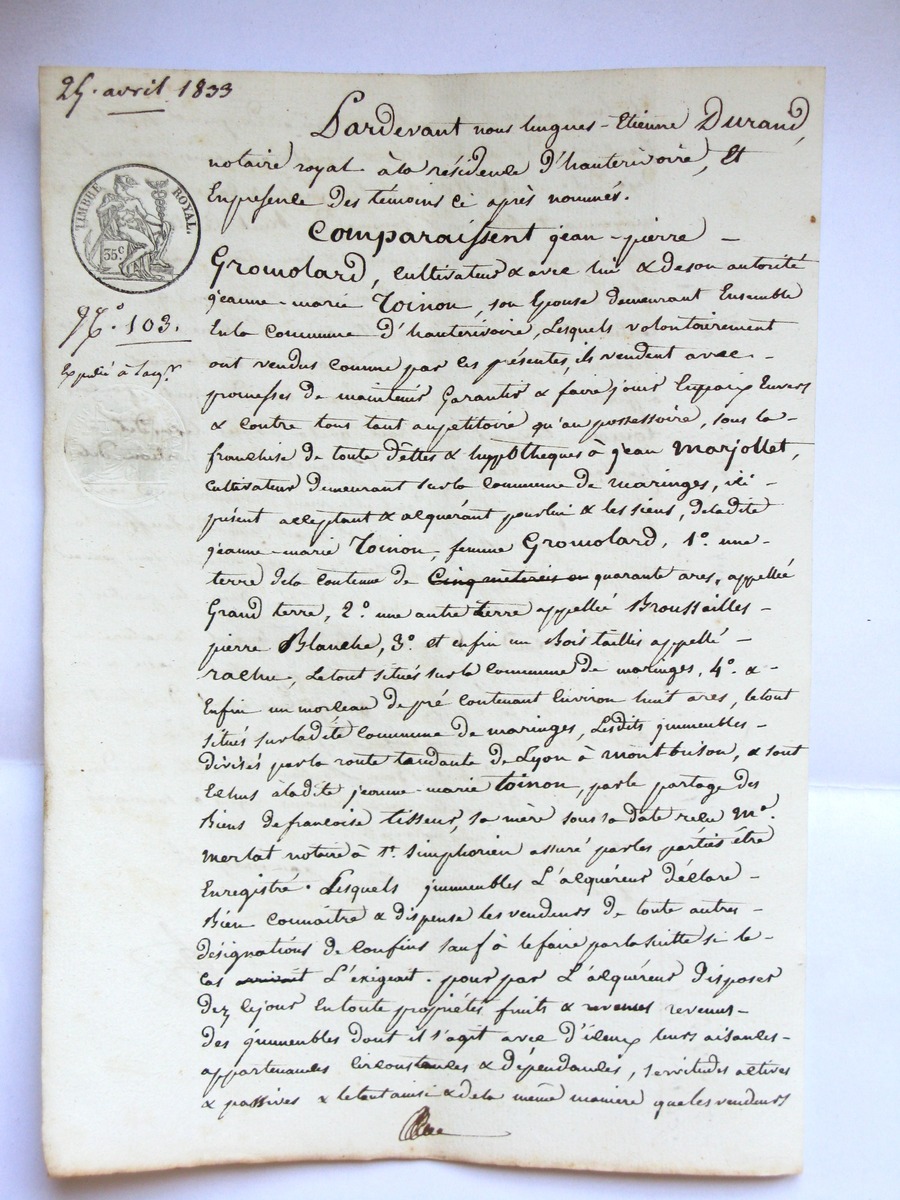 25. avril 1833
Pardevant nous hugues-Etienne Durand,
notaire royal à la résidence d'hauterivoire, Et
En presence des témoins ci après nommés.
TIMBRE ROYAL.
35 c
Comparaissent jean-pierre
Gromolard, cultivateur & avec lui & de son autorité
jeanne-marie Toinon, son Epouse demeurant Ensemble
En la Commune d'hauterivoire, Lesquels volontairement
N.o 103.
ont vendus comme par ces présentes, ils vendent avec
Expédié à l'acq.r
promesses de maintenir Garantir & faire jouir En paix Envers
& contre tous tant au petitoire qu'au possessoire, sous la
franchise de toute dettes & hyppotheques à jean Marjollet,
cultivateur demeurant sur la commune de maringes, ici
présent acceptant & acquérant pour lui & les siens, de la dite
jeanne-marie Toinon, femme Gromolard, 1.o une
terre de la contenue de quarante ares, appellée
Grand terre, 2.o une autre terre appellée Broussailles
pierre Blanche, 3.o et enfin un Bois taillis appellé
, Le tout situés sur la commune de maringes, 4.o &
Enfin un morceau de pré contenant Environ huit ares, le tout
situés sur la dite commune de maringes, Lesdits immeubles
divisés par la route tendante de Lyon à montbrison, & sont
Echus à la dite jeanne-marie toinon, par le partage des
Biens de francoise tisseur, sa mère sous sa date reçu M.e
merlat notaire à S.t Simphorien assuré par les parties être
Enregistré. Lesquels immeubles L'acquéreur déclare
Bien connaitre & dispense les vendeurs de toute autres
désignations de confins sauf à le faire par la suitte si le
cas L'éxigeait. pour par L'acquéreur disposer
dez ce jour En toute propriétés fruits & revenus
des immeubles dont il s'agit avec d'iceux leurs aisances
appartenances circonstances & dépendances, servitudes actives
& passives & le tout ainsi & de la même maniere que les vendeurs